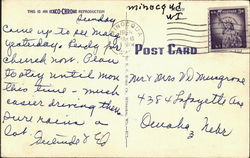 THIS IS AN EKCO-CHROME REPRODUCTION
minocqua
WI
Sunday
Came up to see Mary
yesterday. Ready for
church now. Plan
to stay until mon
this time - much
easier driving
Pure rain a
lot.
POST CARD
Mr & Mrs V D Musgrove
4384 Lafayette Av
Omaha, Nebr